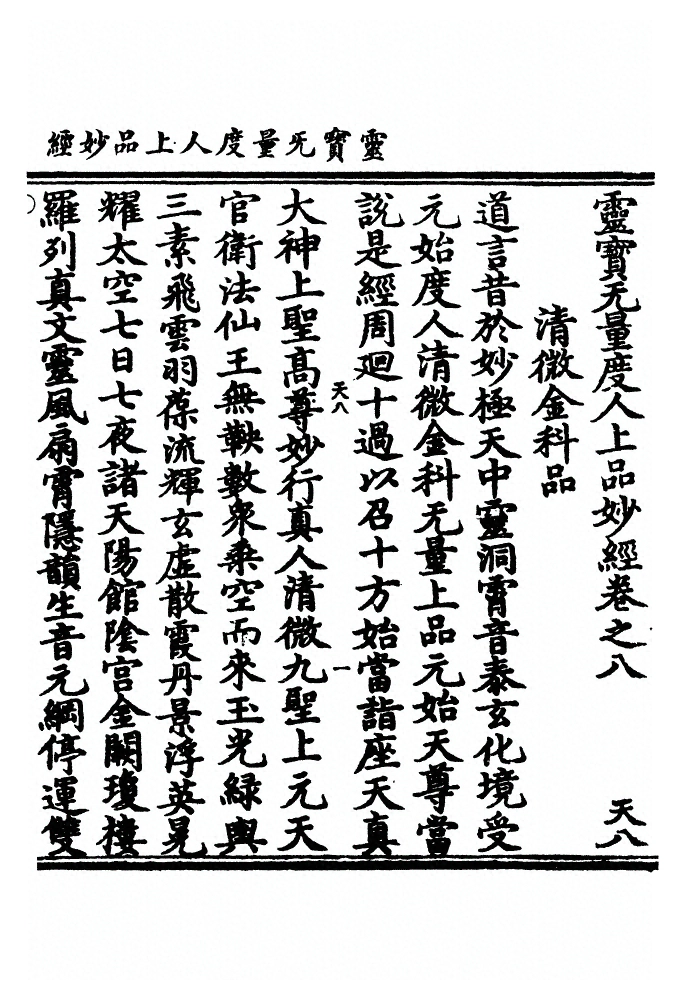 靈寶无量度人上品妙經
靈寶无量度人上品妙經卷之八 天八
清微金科品
道言昔於妙極天中靈洞霄音泰玄化境受
元始度人清微金科无量上品元始天尊當
說是經周迴十過以召十方始當詣座天真
天八 一
大神上聖高尊妙行真人清微九聖上元天
官衛法仙王無鞅數衆乘空而來玉光綠輿
三素飛雲羽葆流輝玄虛散霞丹景浮英晃
耀太空七日七夜諸天陽館陰宫金闕瓊樓
羅列真文靈風扇霄隱韻生音元綱停運雙